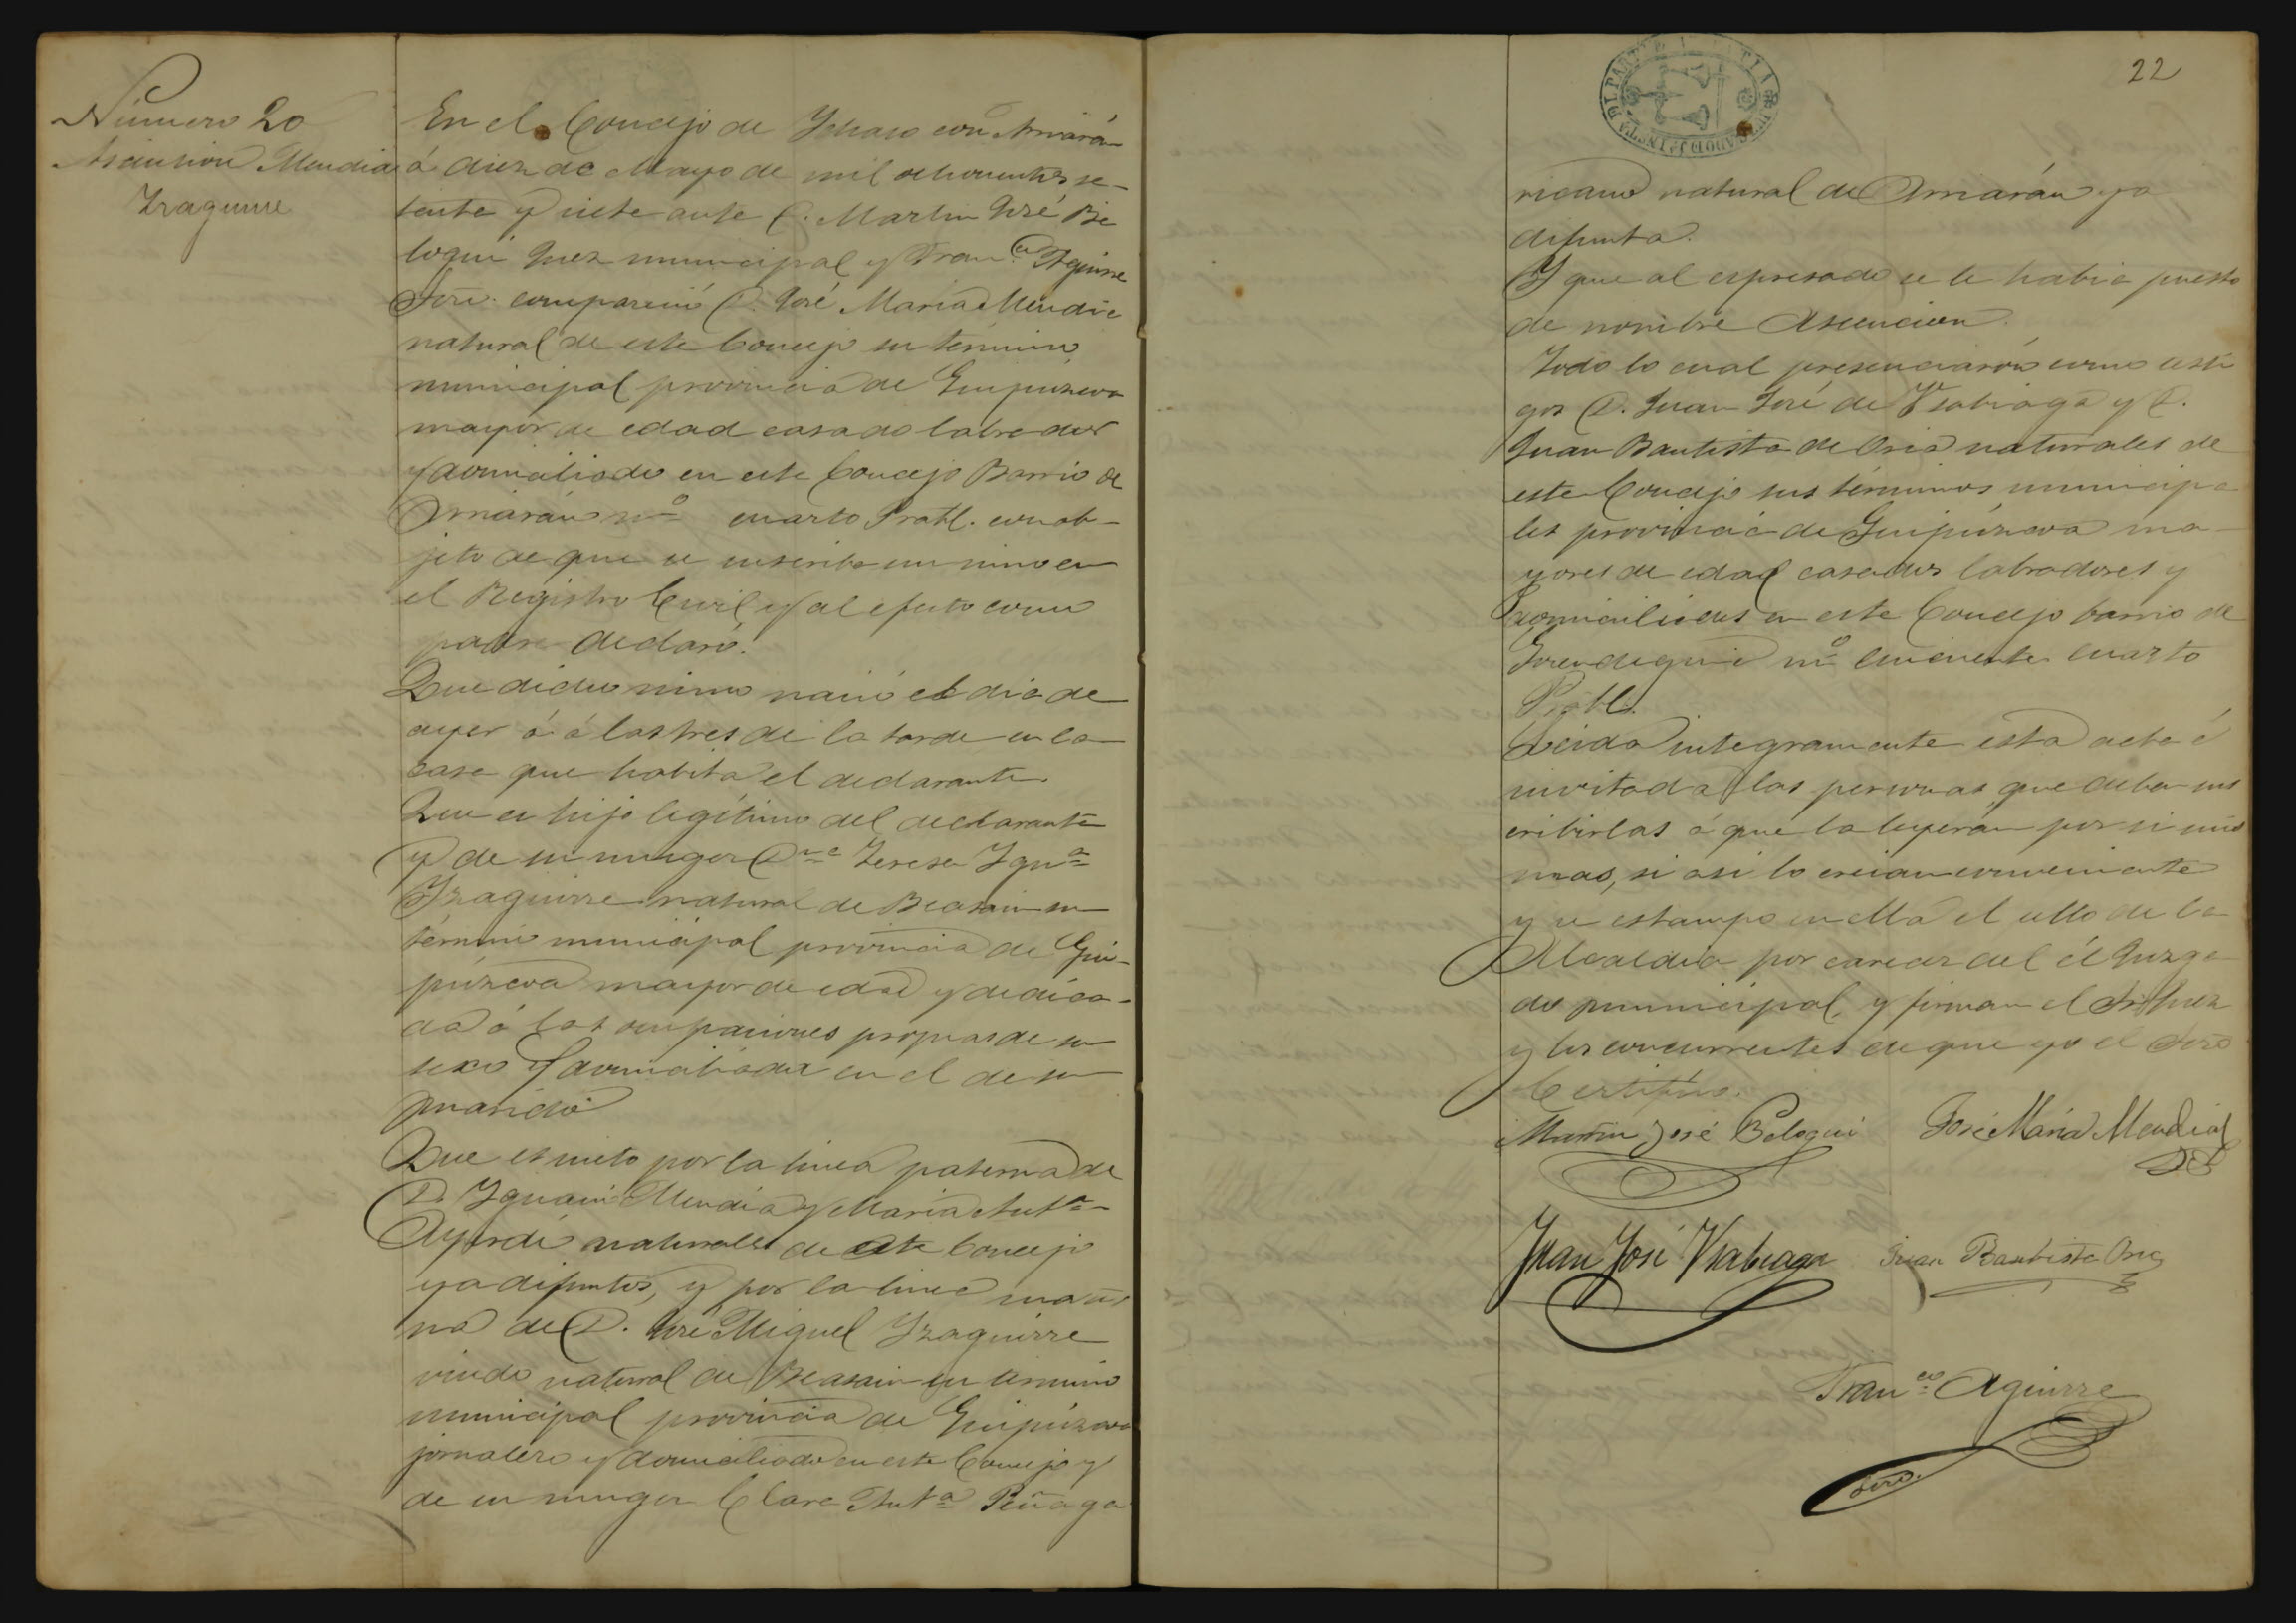 Número 20
Ascension Mendia
Izaguirre
En el Concejo de Ychaso con Arriarán
á diez de Mayo de mil ochocientos se-
tenta y siete ante D. Martin José Be
loqui Juez municipal y Fran.co Aguirre
Srio. compareció D. José Maria Mendia
natural de este Concejo su término
municipal provincia de Guipúzcoa
mayor de edad casado labrador
y domiciliado en este Concejo Barrio de
Arriarán no cuarto Pratl. con ob-
jeto de que se inscriba un nino en
el Registro Civil y al efecto como
padre declaró:
Que dicho nino nació el dia de
ayer á á las tres de la tarde en la
casa que habita el declarante.
Que es hijo legítimo del declarante
y de su muger Dña Teresa Igna
Yzaguirre natural de Beasain su
términi municipal provincia de Gui-
púzcoa mayor de edad y dedica-
da á las ocupaciones propias de su
sexo y domiciliada en el de su
marido
Que es nieto por la linea paterna de
D. Ygnacio Mendia y Maria Anta
Ayerdi naturales de este Concejo
ya difuntos, y por la linea mater
na de D. José Miguel Yzaguirre
viudo natural de Beasain su término
municipal provincia de Guipúzcoa
jornalero y domiciliado en este Concejo y
de su muger Clara Anta Peñaga
22
ricano natural de Arriarán ya
difunta.
Y que al espresado se le habia puesto
de nombre Ascencion.
Todo lo cual presenciarón como testi
gos D. Juan José de Usabiaga y D.
Juan Bautista de Oria naturales de
este Concejo sus términos municipa
les provincia de Guipúzcoa ma-
yores de edad casados labradores y
domiciliados en este Concejo barrio de
no cincuenta cuarto
Pratl.
Leida integramente esta acta é
invitada las personas que deben sus
cribirlas á que la leyeran por si mis
mas, si asi lo creian conveniente
y se estampo en ella el sello de la
Alcaldia por carecer del él Juzga
do municipal, y firman el Sr Juez
y los concurrentes de que yo el Srio
Certifico.
Martin José Beloqui José Maria Mendia
Juan José Usabiaga Juan Bautista Oria
Fran.co Aguirre
Srio.